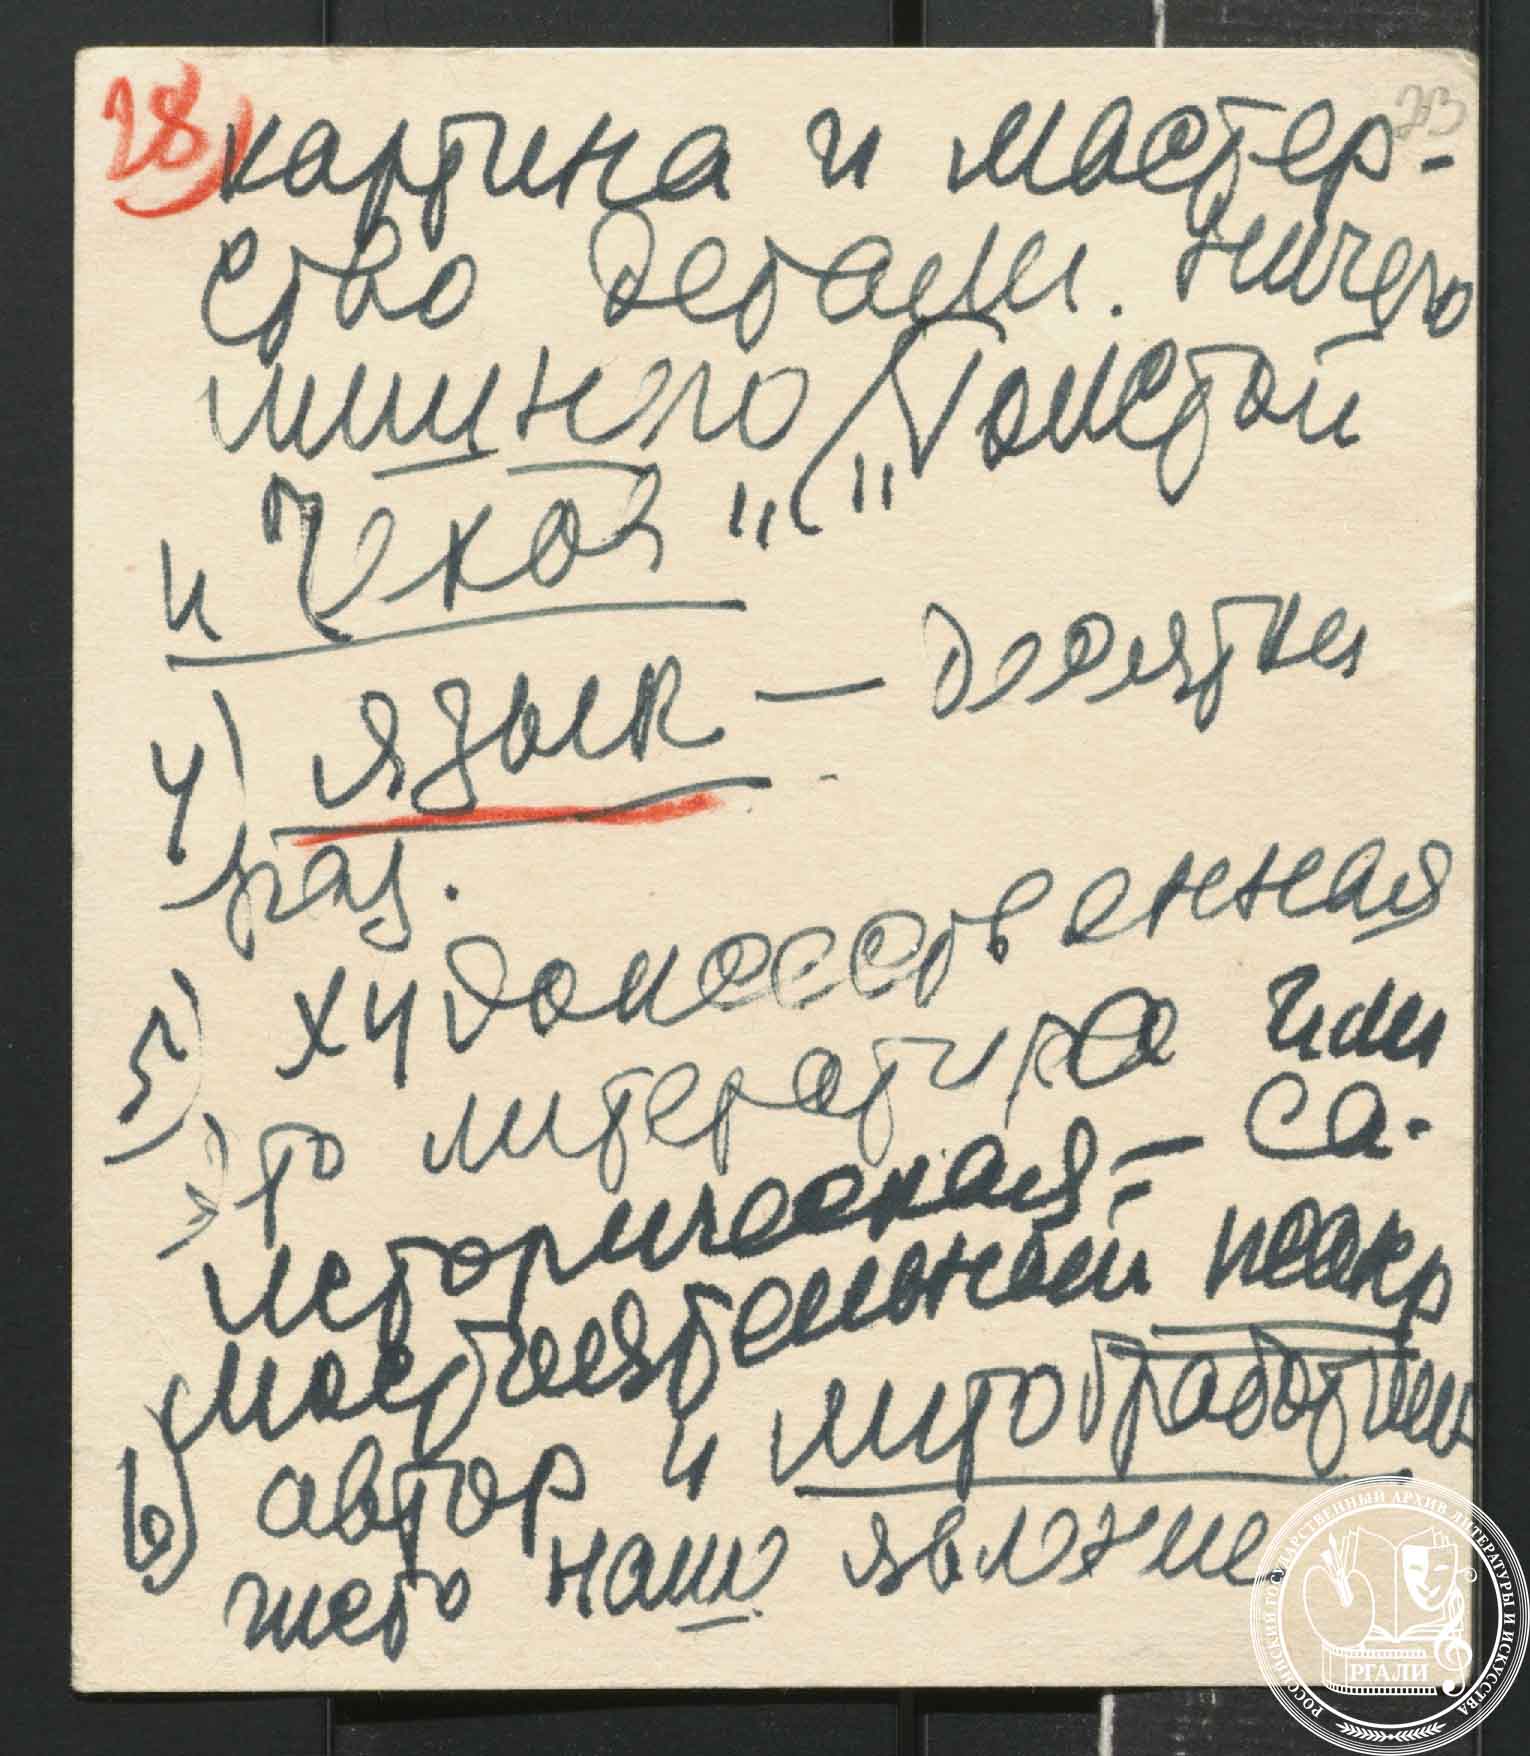 28) 23
картина и мастер-
ство детали. Ничего
лишнего „Толстой
и Чехов"
4) язык — десятки
раз.
5) художественная
это литература или
историческая = са-
мостоятельный жанр
6) автор и литобработчик
жество наш явление
РОССИЙСКИЙ ГОСУДАРСТВЕННЫЙ АРХИВ ЛИТЕРАТУРЫ И ИСКУССТВА
РГАЛИ